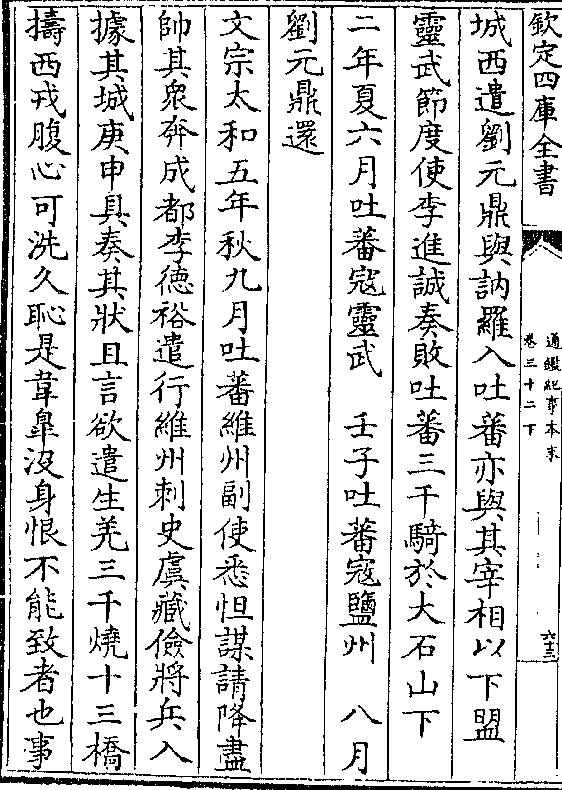 欽定四庫全書
通鑑紀事本末
卷三十二下
六三
城西遣劉元鼎與訥羅入吐蕃亦與其宰相以下盟
靈武節度使李進誠奏敗吐蕃三千騎於大石山下
二年夏六月吐蕃寇靈武　壬子吐蕃寇鹽州　八月
劉元鼎還
文宗太和五年秋九月吐蕃維州副使悉怛謀請降盡
帥其衆奔成都李德裕遣行維州刺史虞藏儉將兵入
據其城庚申具奏其狀且言欲遣生羌三千燒十三橋
擣西戎腹心可洗久恥是韋臯沒身恨不能致者也事